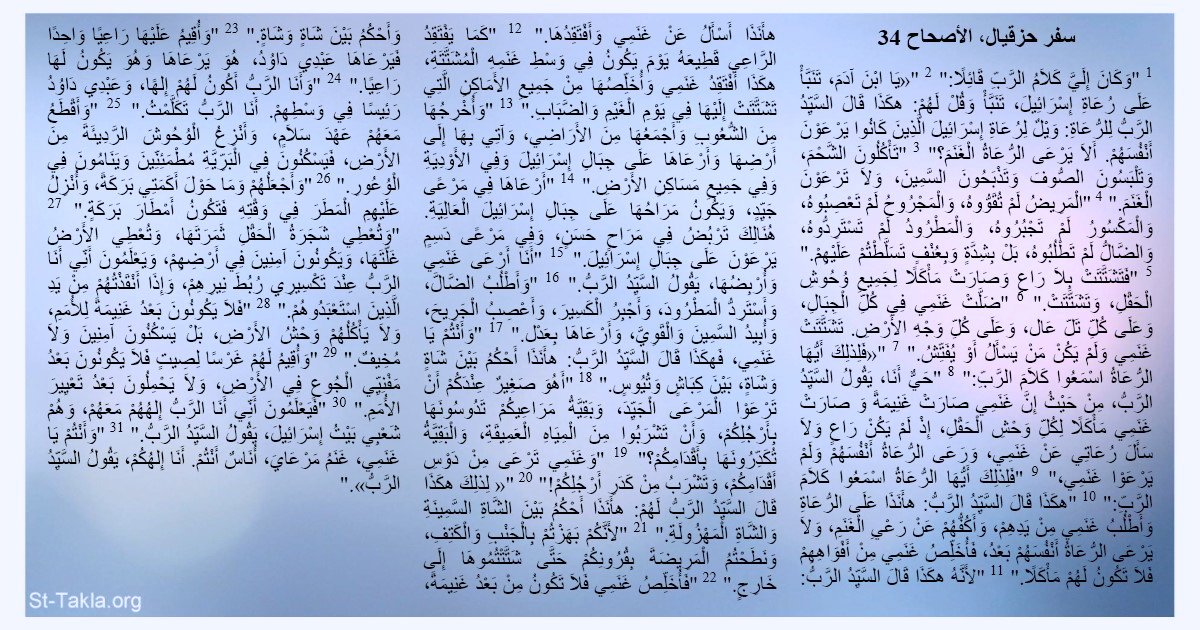 سفر حزقيال، الأصحاح 34
1 "وَكَانَ إِلَيَّ كَلاَمُ الرَّبِّ قَائِلاً:" 2 "«يَا ابْنَ آدَمَ، تَنَبَّأْ
عَلَى رُعَاةِ إِسْرَائِيلَ، تَنَبَّأْ وَقُلْ لَهُمْ: هكَذَا قَالَ السَّيِّدُ
الرَّبُّ لِلرُّعَاةِ: وَيْلٌ لِرُعَاةِ إِسْرَائِيلَ الَّذِينَ كَانُوا يَرْعَوْنَ
أَنْفُسَهُمْ. أَلاَ يَرْعَى الرُّعَاةُ الْغَنَمَ؟" 3 "تَأْكُلُونَ الشَّحْمَ،
وَتَلْبَسُونَ الصُّوفَ وَتَذْبَحُونَ السَّمِينَ، وَلاَ تَرْعَوْنَ
الْغَنَمَ." 4 "الْمَرِيضُ لَمْ تُقَوُّوهُ، وَالْمَجْرُوحُ لَمْ تَعْصِبُوهُ،
وَالْمَكْسُورُ لَمْ تَجْبُرُوهُ، وَالْمَطْرُودُ لَمْ تَسْتَرِدُّوهُ،
وَالضَّالُّ لَمْ تَطْلُبُوهُ، بَلْ بِشِدَّةٍ وَبِعُنْفٍ تَسَلَّطْتُمْ عَلَيْهِمْ."
5 "فَتَشَتَّتَتْ بِلاَ رَاعٍ وَصَارَتْ مَأْكَلاً لِجَمِيعِ وُحُوشِ
الْحَقْلِ، وَتَشَتَّتَتْ." 6 "ضَلَّتْ غَنَمِي فِي كُلِّ الْجِبَالِ،
وَعَلَى كُلِّ تَلّ عَال، وَعَلَى كُلِّ وَجْهِ الأَرْضِ. تَشَتَّتَتْ
غَنَمِي وَلَمْ يَكُنْ مَنْ يَسْأَلُ أَوْ يُفَتِّشُ." 7 "«فَلِذلِكَ أَيُّهَا
الرُّعَاةُ اسْمَعُوا كَلاَمَ الرَّبِّ:" 8 "حَيٌّ أَنَا، يَقُولُ السَّيِّدُ
الرَّبُّ، مِنْ حَيْثُ إِنَّ غَنَمِي صَارَتْ غَنِيمَةً وَ صَارَتْ
غَنَمِي مَأْكَلاً لِكُلِّ وَحْشِ الْحَقْلِ، إِذْ لَمْ يَكُنْ رَاعٍ وَلاَ
سَأَلَ رُعَاتِي عَنْ غَنَمِي، وَرَعَى الرُّعَاةُ أَنْفُسَهُمْ وَلَمْ
يَرْعَوْا غَنَمِي،" 9 "فَلِذلِكَ أَيُّهَا الرُّعَاةُ اسْمَعُوا كَلاَمَ
الرَّبِّ:" 10 "هكَذَا قَالَ السَّيِّدُ الرَّبُّ: هأَنَذَا عَلَى الرُّعَاةِ
وَأَطْلُبُ غَنَمِي مِنْ يَدِهِمْ، وَأَكُفُّهُمْ عَنْ رَعْيِ الْغَنَمِ، وَلاَ
يَرْعَى الرُّعَاةُ أَنْفُسَهُمْ بَعْدُ، فَأُخَلِّصُ غَنَمِي مِنْ أَفْوَاهِهِمْ
فَلاَ تَكُونُ لَهُمْ مَأْكَلاً." 11 "لأَنَّهُ هكَذَا قَالَ السَّيِّدُ الرَّبُّ:
هأَنَذَا أَسْأَلُ عَنْ غَنَمِي وَأَفْتَقِدُهَا." 12 "كَمَا يَفْتَقِدُ
الرَّاعِي قَطِيعَهُ يَوْمَ يَكُونُ فِي وَسْطِ غَنَمِهِ الْمُشَتَّتَةِ،
هكَذَا أَفْتَقِدُ غَنَمِي وَأُخَلِّصُهَا مِنْ جَمِيعِ الأَمَاكِنِ الَّتِي
تَشَتَّتَتْ إِلَيْهَا فِي يَوْمِ الْغَيْمِ وَالضَّبَابِ." 13 "وَأُخْرِجُهَا
مِنَ الشُّعُوبِ وَأَجْمَعُهَا مِنَ الأَرَاضِي، وَآتِي بِهَا إِلَى
أَرْضِهَا وَأَرْعَاهَا عَلَى جِبَالِ إِسْرَائِيلَ وَفِي الأَوْدِيَةِ
وَفِي جَمِيعِ مَسَاكِنِ الأَرْضِ." 14 "أَرْعَاهَا فِي مَرْعًى
جَيِّدٍ، وَيَكُونُ مَرَاحُهَا عَلَى جِبَالِ إِسْرَائِيلَ الْعَالِيَةِ.
هُنَالِكَ تَرْبُضُ فِي مَرَاحٍ حَسَنٍ، وَفِي مَرْعًى دَسِمٍ
يَرْعَوْنَ عَلَى جِبَالِ إِسْرَائِيلَ." 15 "أَنَا أَرْعَى غَنَمِي
وَأُرْبِضُهَا، يَقُولُ السَّيِّدُ الرَّبُّ." 16 "وَأَطْلُبُ الضَّالَّ،
وَأَسْتَرِدُّ الْمَطْرُودَ، وَأَجْبِرُ الْكَسِيرَ، وَأَعْصِبُ الْجَرِيحَ،
وَأُبِيدُ السَّمِينَ وَالْقَوِيَّ، وَأَرْعَاهَا بِعَدْل." 17 "وَأَنْتُمْ يَا
غَنَمِي، فَهكَذَا قَالَ السَّيِّدُ الرَّبُّ: هأَنَذَا أَحْكُمُ بَيْنَ شَاةٍ
وَشَاةٍ، بَيْنَ كِبَاشٍ وَتُيُوسٍ." 18 "أَهُوَ صَغِيرٌ عِنْدَكُمْ أَنْ
تَرْعَوْا الْمَرْعَى الْجَيِّدَ، وَبَقِيَّةُ مَرَاعِيكُمْ تَدُوسُونَهَا
بِأَرْجُلِكُمْ، وَأَنْ تَشْرَبُوا مِنَ الْمِيَاهِ الْعَمِيقَةِ، وَالْبَقِيَّةُ
تُكَدِّرُونَهَا بِأَقْدَامِكُمْ؟" 19 "وَغَنَمِي تَرْعَى مِنْ دَوْسِ
أَقْدَامِكُمْ، وَتَشْرَبُ مِنْ كَدَرِ أَرْجُلِكُمْ!" 20 "« لِذلِكَ هكَذَا
قَالَ السَّيِّدُ الرَّبُّ لَهُمْ: هأَنَذَا أَحْكُمُ بَيْنَ الشَّاةِ السَّمِينَةِ
وَالشَّاةِ الْمَهْزُولَةِ." 21 "لأَنَّكُمْ بَهَزْتُمْ بِالْجَنْبِ وَالْكَتِفِ،
وَنَطَحْتُمُ الْمَرِيضَةَ بِقُرُونِكُمْ حَتَّى شَتَّتْتُمُوهَا إِلَى
خَارِجٍ." 22 "فَأُخَلِّصُ غَنَمِي فَلاَ تَكُونُ مِنْ بَعْدُ غَنِيمَةً،
وَأَحْكُمُ بَيْنَ شَاةٍ وَشَاةٍ." 23 "وَأُقِيمُ عَلَيْهَا رَاعِيًا وَاحِدًا
فَيَرْعَاهَا عَبْدِي دَاوُدُ، هُوَ يَرْعَاهَا وَهُوَ يَكُونُ لَهَا
رَاعِيًا." 24 "وَأَنَا الرَّبُّ أَكُونُ لَهُمْ إِلهًا، وَعَبْدِي دَاوُدُ
رَئِيسًا فِي وَسْطِهِمْ. أَنَا الرَّبُّ تَكَلَّمْتُ." 25 "وَأَقْطَعُ
مَعَهُمْ عَهْدَ سَلاَمٍ، وَأَنْزِعُ الْوُحُوشَ الرَّدِيئَةَ مِنَ
الأَرْضِ، فَيَسْكُنُونَ فِي الْبَرِّيَّةِ مُطْمَئِنِّينَ وَيَنَامُونَ فِي
الْوُعُورِ." 26 "وَأَجْعَلُهُمْ وَمَا حَوْلَ أَكَمَتِي بَرَكَةً، وَأُنْزِلُ
عَلَيْهِمِ الْمَطَرَ فِي وَقْتِهِ فَتَكُونُ أَمْطَارَ بَرَكَةٍ." 27
"وَتُعْطِي شَجَرَةُ الْحَقْلِ ثَمَرَتَهَا، وَتُعْطِي الأَرْضُ
غَلَّتَهَا، وَيَكُونُونَ آمِنِينَ فِي أَرْضِهِمْ، وَيَعْلَمُونَ أَنِّي أَنَا
الرَّبُّ عِنْدَ تَكْسِيرِي رُبُطَ نِيرِهِمْ، وَإِذَا أَنْقَذْتُهُمْ مِنْ يَدِ
الَّذِينَ اسْتَعْبَدُوهُمْ." 28 "فَلاَ يَكُونُونَ بَعْدُ غَنِيمَةً لِلأُمَمِ،
وَلاَ يَأْكُلُهُمْ وَحْشُ الأَرْضِ، بَلْ يَسْكُنُونَ آمِنِينَ وَلاَ
مُخِيفٌ." 29 "وَأُقِيمُ لَهُمْ غَرْسًا لِصِيتٍ فَلاَ يَكُونُونَ بَعْدُ
مَفْنِيِّي الْجُوعِ فِي الأَرْضِ، وَلاَ يَحْمِلُونَ بَعْدُ تَعْيِيرَ
الأُمَمِ." 30 "فَيَعْلَمُونَ أَنِّي أَنَا الرَّبُّ إِلهُهُمْ مَعَهُمْ، وَهُمْ
شَعْبِي بَيْتُ إِسْرَائِيلَ، يَقُولُ السَّيِّدُ الرَّبُّ." 31 "وَأَنْتُمْ يَا
غَنَمِي، غَنَمُ مَرْعَايَ، أُنَاسٌ أَنْتُمْ. أَنَا إِلهُكُمْ، يَقُولُ السَّيِّدُ
الرَّبُّ»."
St-Takla.org